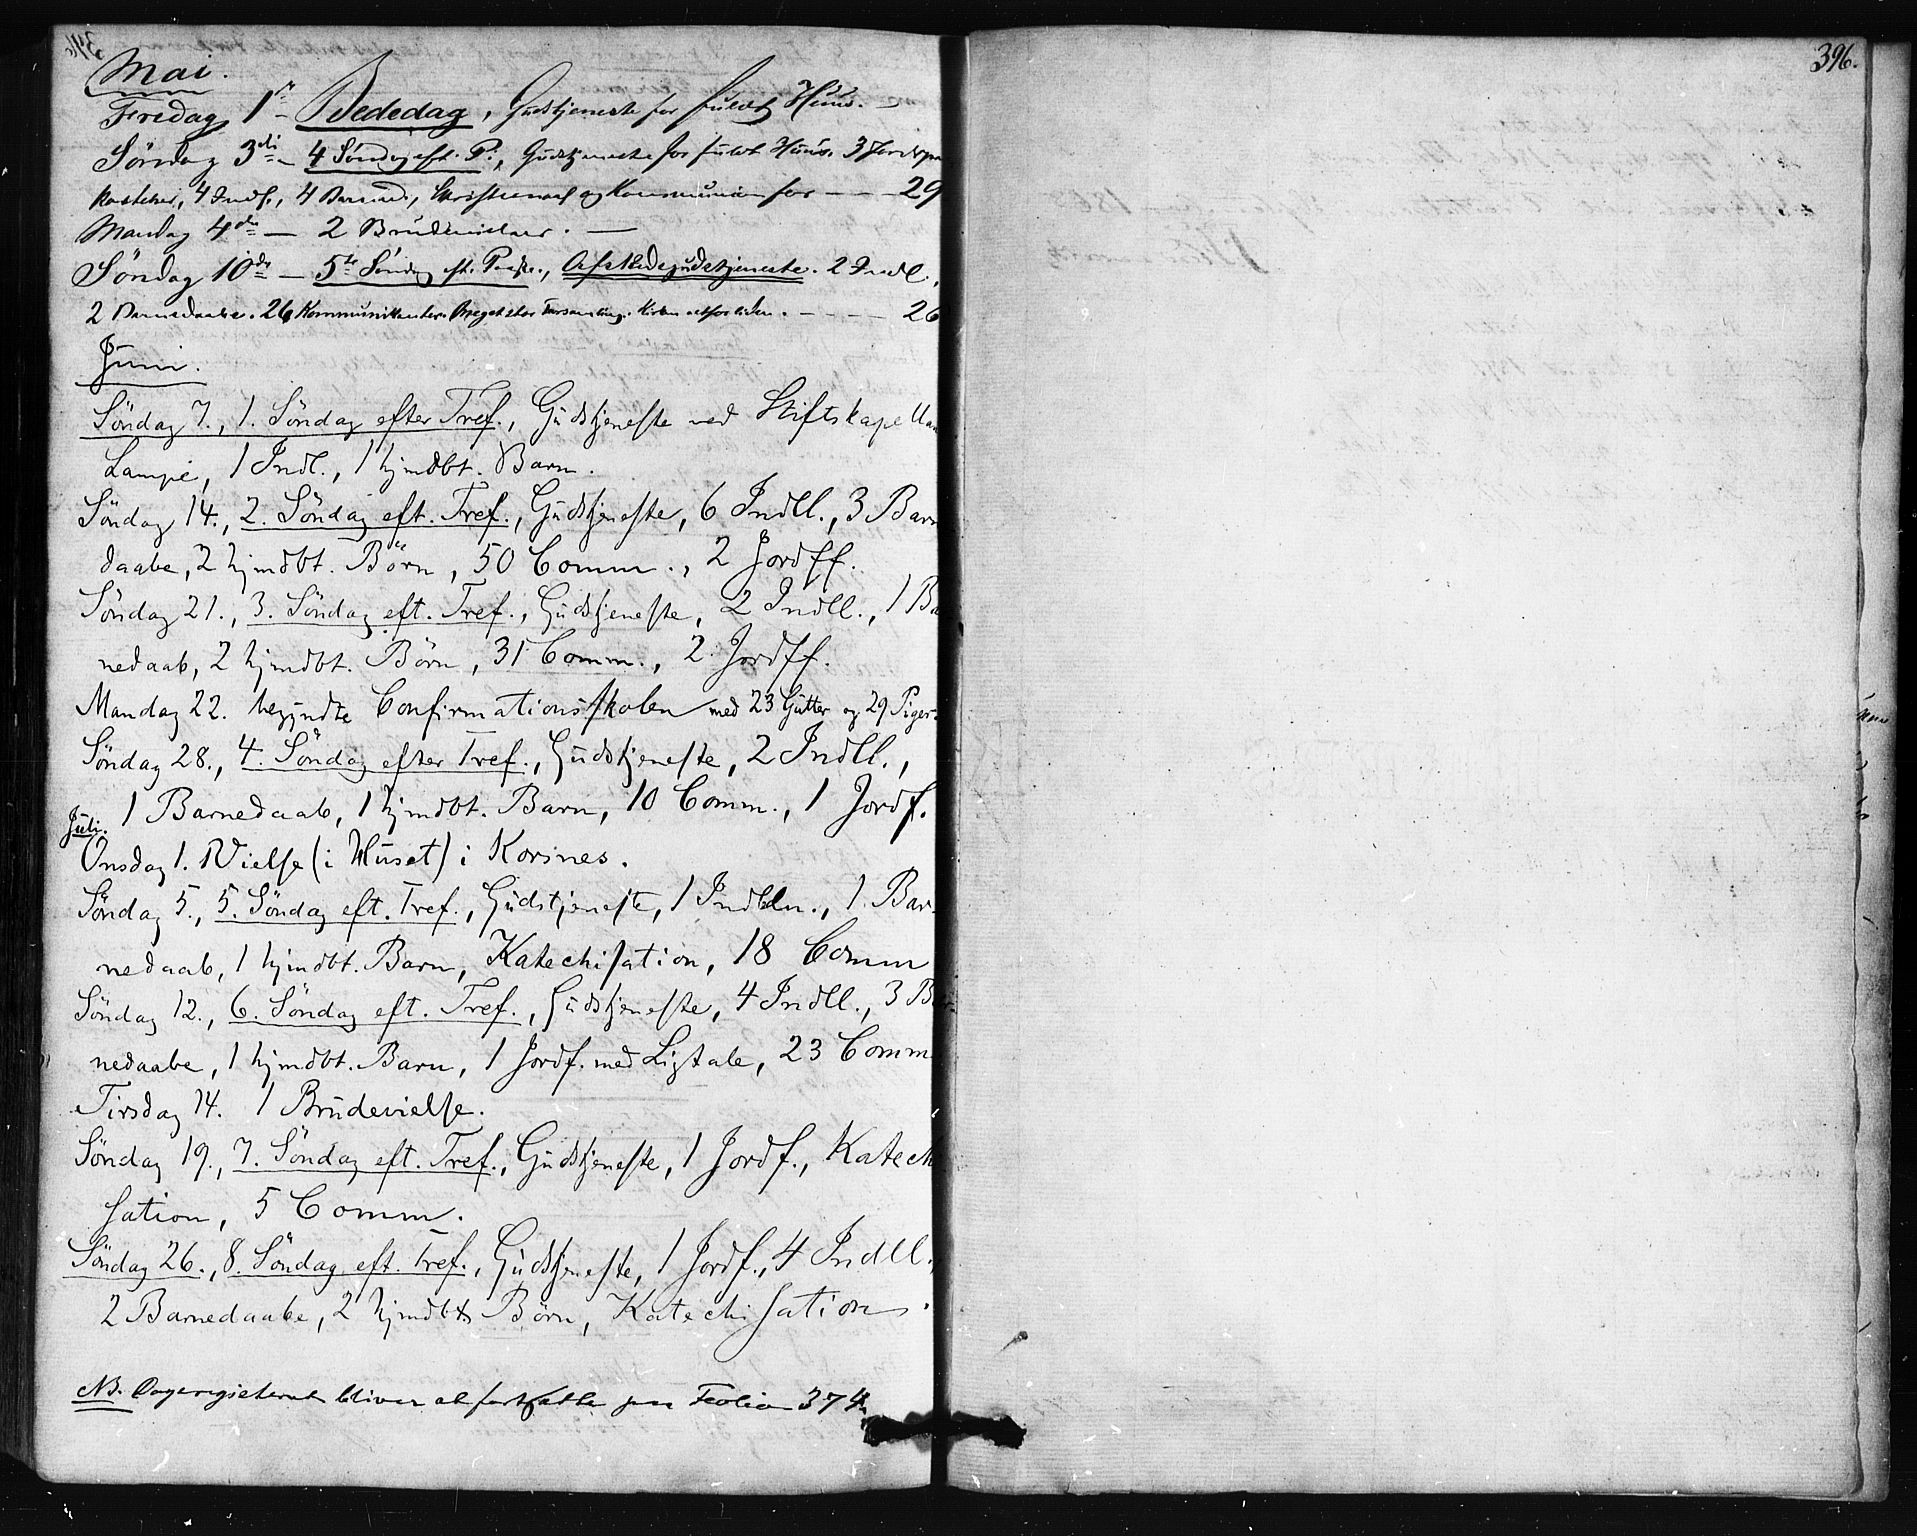 396.
Mai.
Fredag 1ste Bededag, Gudstjeneste for fuldt Huus. —
Søndag 3die — 4 Søndag eft. P., Gudstjeneste for fuldt Huus. 3 Jordpaa
kastelser, 4 Indl., 4 Barned., Skriftemaal og Kommunion for — — 29
Mandag 4de — 2 Brudevielser. —
Søndag 10de — 5te Søndag eft. Paaske., Afskedsgudstjeneste. 2 Indl.,
2 Barnedaabe. 26 Kommunikanter. Meget stor Forsamling. Kirken altfor liden. — — — — 26
Juni.
Søndag 7., 1. Søndag efter Tref., Gudstjeneste ved Stiftskapellan
Lampe, 1 Indl., 1 hjmdbt. Barn.
Søndag 14., 2. Søndag eft. Tref., Gudstjeneste, 6 Indll., 3 Barne
daabe, 2 hjmdbt. Börn, 50 Comm., 2 Jordff.
Søndag 21., 3. Søndag eft. Tref., Gudstjeneste, 2 Indll., 1 Bar
nedaab, 2 hjmdbt. Børn, 31 Comm., 2 Jordff.
Mandag 22. begyndte Confirmationsskolen med 23 Gutter og 29 Piger.
Søndag 28., 4. Søndag efter Tref., Gudstjeneste, 2 Indll.,
1 Barnedaab, 1 hjmdbt. Barn, 10 Comm., 1 Jordf.
Juli.
Onsdag 1. Vielse (i Huset) i Korsnes.
Søndag 5., 5. Søndag eft. Tref., Gudstjeneste, 1 Indledn., 1. Bar-
nedaab, 1 hjmdbt. Barn, Katechisation, 18 Comm
Søndag 12., 6. Søndag eft. Tref., Gudstjeneste, 4 Indll., 3 Bar
nedaabe, 1 hjmdbt. Barn, 1 Jordf. med Ligtale, 23 Comm
Tirsdag 14. 1 Brudevielse.
Søndag 19., 7. Søndag eft. Tref., Gudstjeneste, 1 Jordf., Katechi
sation, 5 Comm.
Søndag 26., 8. Søndag eft. Tref., Gudstjeneste, 1 Jordf., 4 Indll.,
2 Barnedaabe, 2 hjmdbt. Børn, Katechisation.
NB. Dagsregisteret bliver at fortsætte paa Folio 374